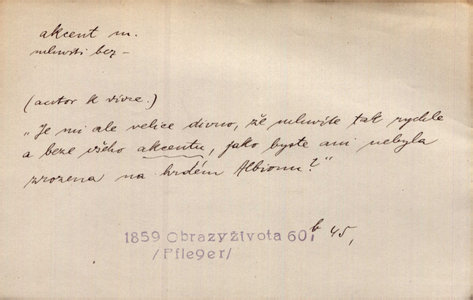 akcent m.
mluviti bez –
(autor k dívce.)
„Je mi ale velice divno, že mluvíte tak rychle
a beze všeho akcentu, jako byste ani nebyla
zrozena na hrdém Albionu?"
1859 Obrazy života 60, b 45,
/Pfleger/